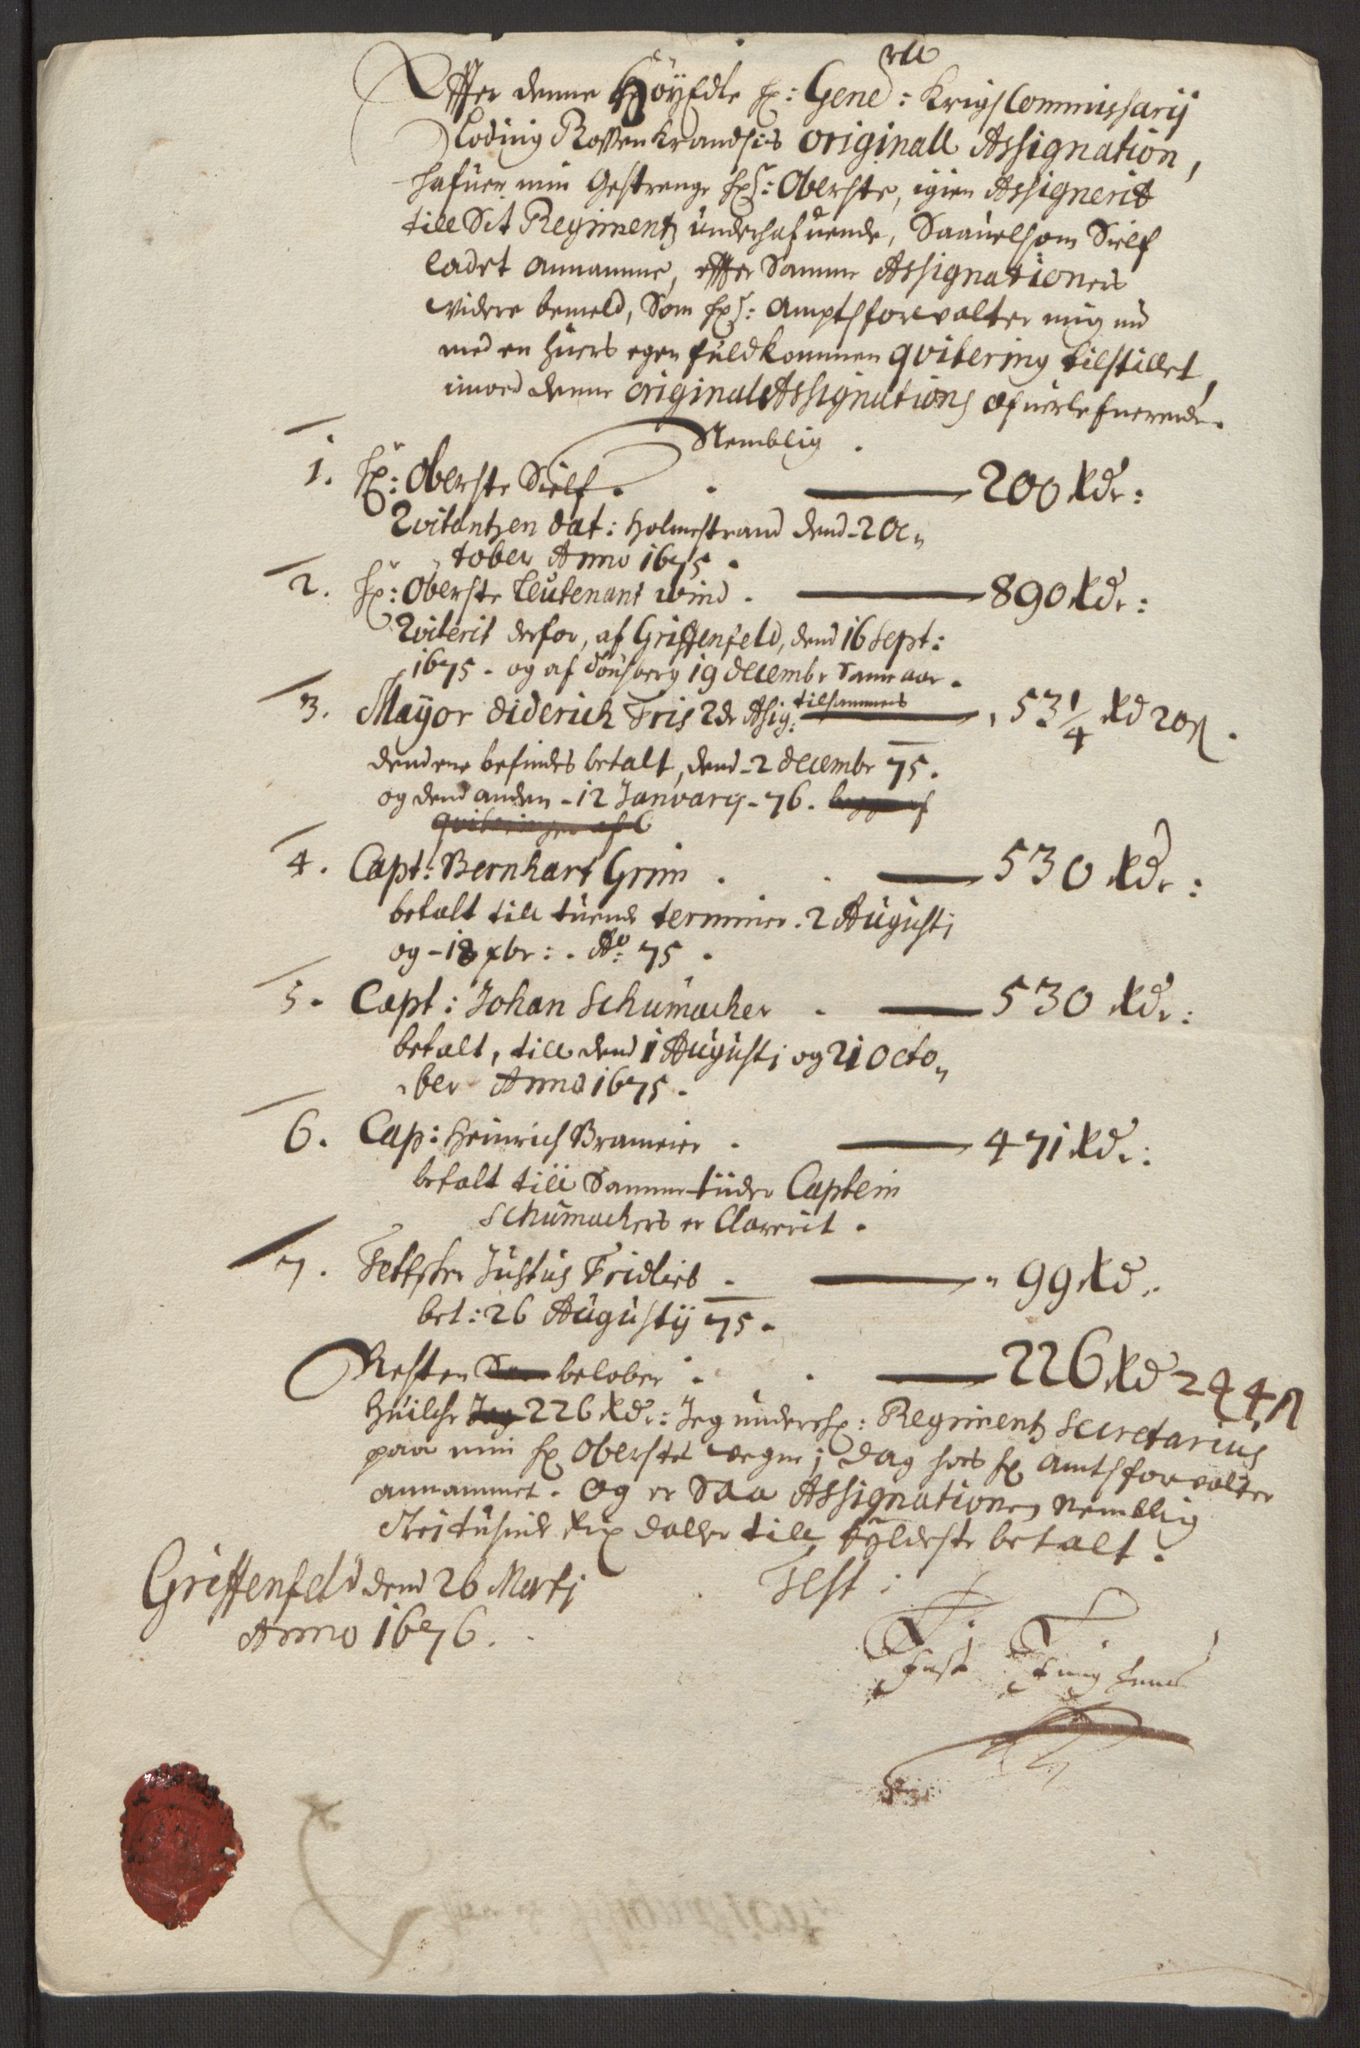 Effter denne Höyedle H: Gene: rll Krigs Commissarij
Loduig Rossenkrandsis originall Assignation,
hafuer min Gestrenge Hr: Oberste, igien Assignerit
till Sit Regimentz underhafuende, Saauelsom Sielf
ladet annamme, effter Samme Assignationers
videre bemeld, Som Hr: Amptsforvalter mig nu
med en huers egen fuldkommen qvitering tilstillet,
imod denne originale Assignations ofuerlefuerende.
Nemblig.
1. Hr: Oberste Sielf. — 200 Rdr:
Qvitantzen dat: Holmestrand dend 2 Oc„
tober Anno 1675.
2. Hr: Oberste Leutenant Wind. — 890 Rdr:
Qviterit derfor, af Griffenfeld, dend 16 Sept:
1675. og af Tönsberg 19 decembr Samme aar.
3. Mayor Diderich Fris 2de Asig: tilsammens — 53 1/4 Rd 20 ß.
dend ene befindes betalt, dend 2 decembr 75.
og dend anden 12 Januarij 76. begge af
qviteringer af
4. Capt: Bernhart Grim. — 530 Rdr:
betalt till tuende terminer. 2 Augusti
og 18 xbr: Ao: 75.
5. Capt: Johan Schumacher. — 530 Rdr:
betalt, till dend 1 Augusti og 21 Octo„
ber Anno 1675.
6. Cap: Heinrich Brameier. — 471 Rdr:
betalt till Samme tüder Captein
Schumachers er Clarerit.
7. Feltskr Justus Fridlieb. — 99 Rd.
bet: 26 Augustij 75.
Resten beløber. — 226 Rd 2 4 4 ß
huilche Jeg 226 Rdr: Jeg underskr: Regimentz Secretarius
paa min Hr Oberstes vegne i dag hos Hr Amtsforvalter
annammet. Og er Saa Assignationen Nemblig
Trei tusinde Rix daller till fyldeste betalt.
Griffenfeld dend 26 Marti
Anno 1676.
Test: